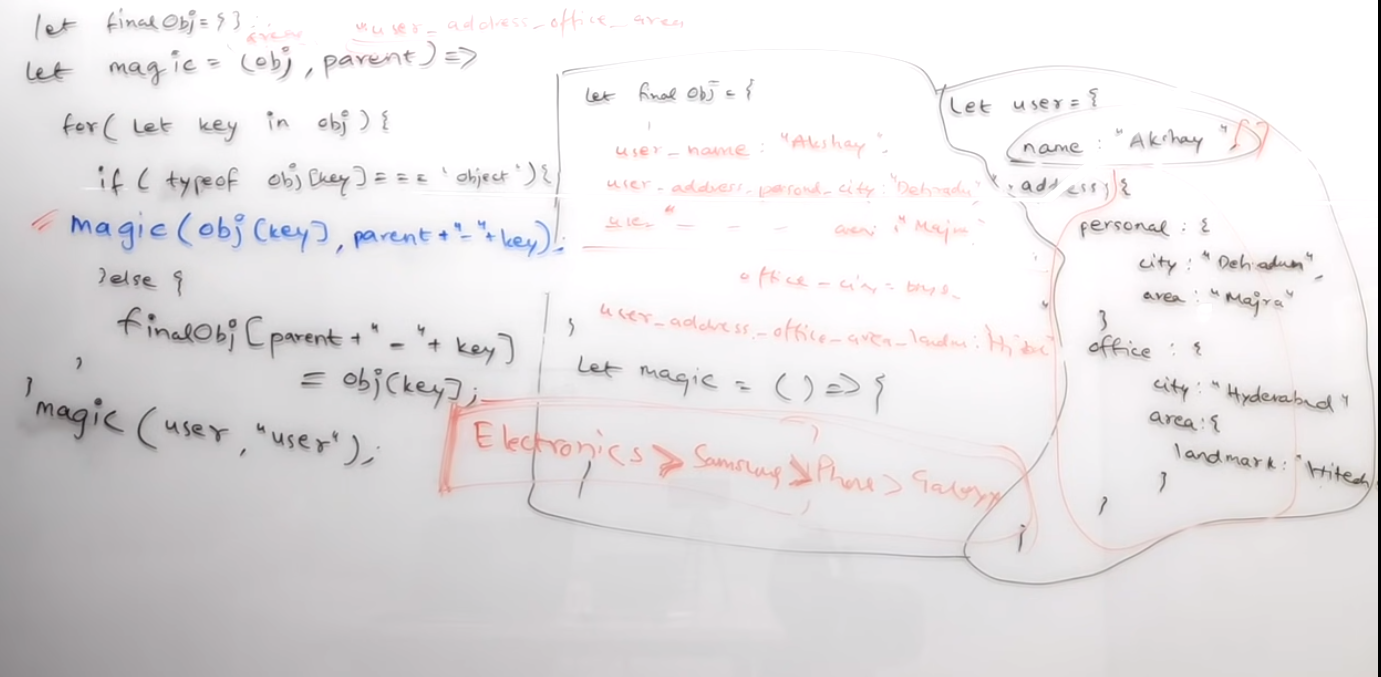 let finalObj = {}
area "user_address_office_area
let magic = (obj, parent) =>
for( let key in obj ) {
if ( typeof obj[key] === 'object') {
magic (obj [key], parent+"-"+key);
}else {
finalObj [parent + "-" + key]
= obj[key];
}
}
magic (user, "user");
let final Obj = {
user_name : "Akshay",
user_address_personal_city : "Dehradun",
area : "Majra
office - city =
user_address_office_area_landm :
}
Let magic = () => {
Electronics > Samsung > Phone > Galaxy
}
Let user = {
name : "Akshay",
address {
personal : {
city : "Dehradun",
area : "Majra"
}
office : {
city : "Hyderabad"
area : {
landmark : "Hitech
}
}
}